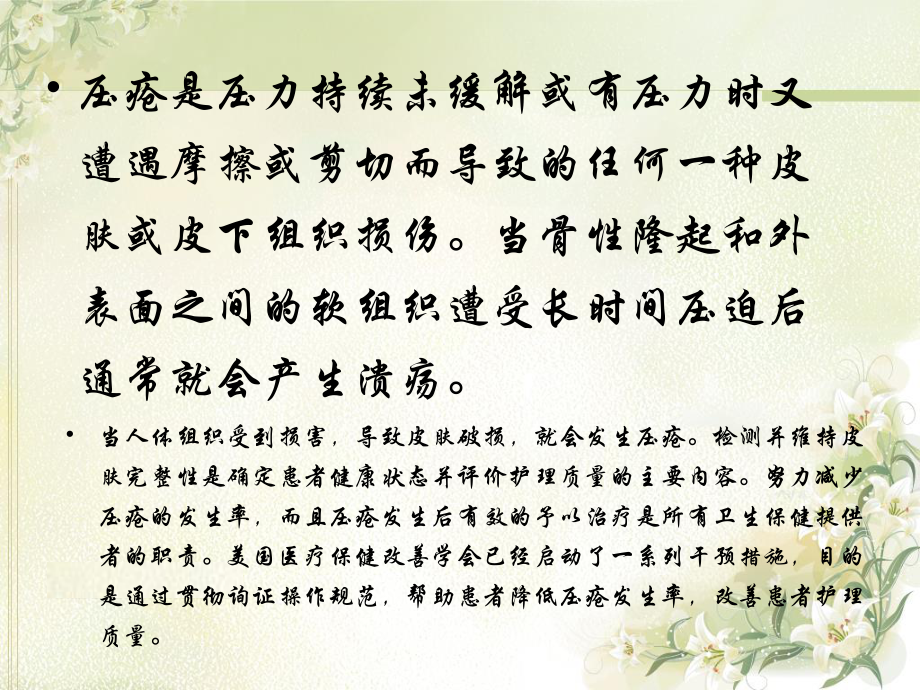 • 压疮是压力持续未缓解或有压力时又
遭遇摩擦或剪切而导致的任何一种皮
肤或皮下组织损伤。当骨性隆起和外
表面之间的软组织遭受长时间压迫后
通常就会产生溃疡。
• 当人体组织受到损害，导致皮肤破损，就会发生压疮。检测并维持皮
肤完整性是确定患者健康状态并评价护理质量的主要内容。努力减少
压疮的发生率，而且压疮发生后有效的予以治疗是所有卫生保健提供
者的职责。美国医疗保健改善学会已经启动了一系列干预措施，目的
是通过贯彻询证操作规范，帮助患者降低压疮发生率，改善患者护理
质量。